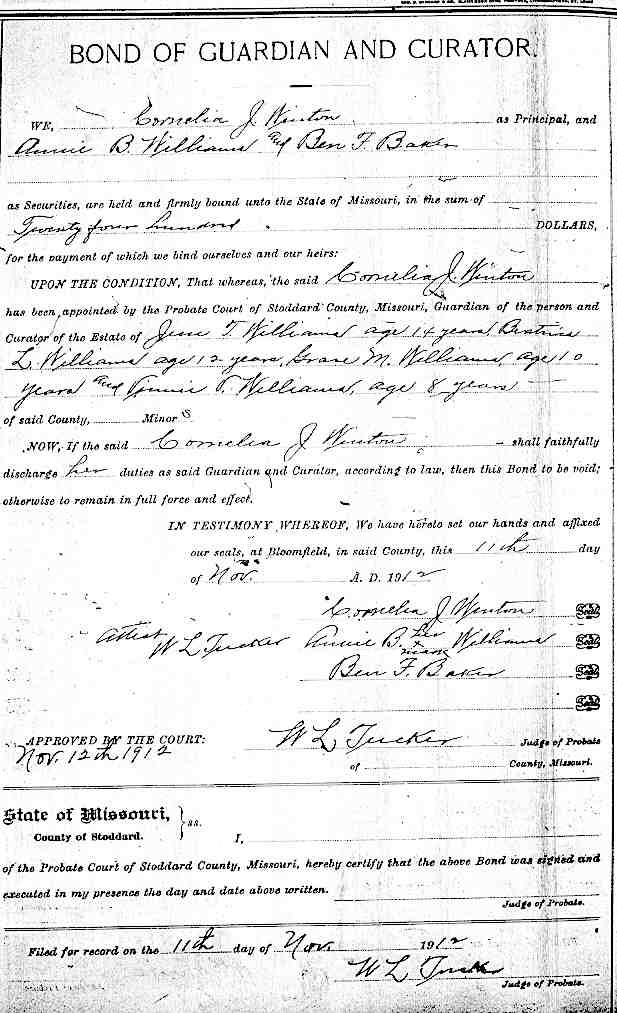 BOND OF GUARDIAN AND CURATOR.
WE, Cornelia J Winton as Principal, and
Annie B. Williams and Ben F. Baker
as Securities, are held and firmly bound unto the State of Missouri, in the sum of
Twenty four hundred DOLLARS,
for the payment of which we bind ourselves and our heirs:
UPON THE CONDITION, That whereas, the said Cornelia J. Winton
has been appointed by the Probate Court of Stoddard County, Missouri, Guardian of the person and
Curator of the Estate of Jesse T. Williams age 14 years Beatrice
L. Williams age 12 years, Grace M. Williams, age 10
years and T. Williams, age 8 years
of said County, Minors
NOW, If the said Cornelia J Winton shall faithfully
discharge her duties as said Guardian and Curator, according to law, then this Bond to be void;
otherwise to remain in full force and effect.
IN TESTIMONY WHEREOF, We have hereto set our hands and affixed
our seals, at Bloomfield, in said County, this 11th day
of Nov. A. D. 1912
Cornelia J Winton Seal
Attest W L Tucker Annie B. her x mark Williams Seal
Ben F. Baker Seal
Seal
APPROVED BY THE COURT: W L Tucker Judge of Probate
Nov. 12th 1912 of County, Missouri.
State of Missouri,
County of Stoddard. } ss. I,
of the Probate Court of Stoddard County, Missouri, hereby certify that the above Bond was signed and
executed in my presence the day and date above written.
Judge of Probate.
Filed for record on the 11th day of Nov. 1912
W L Tucker
Judge of Probate.